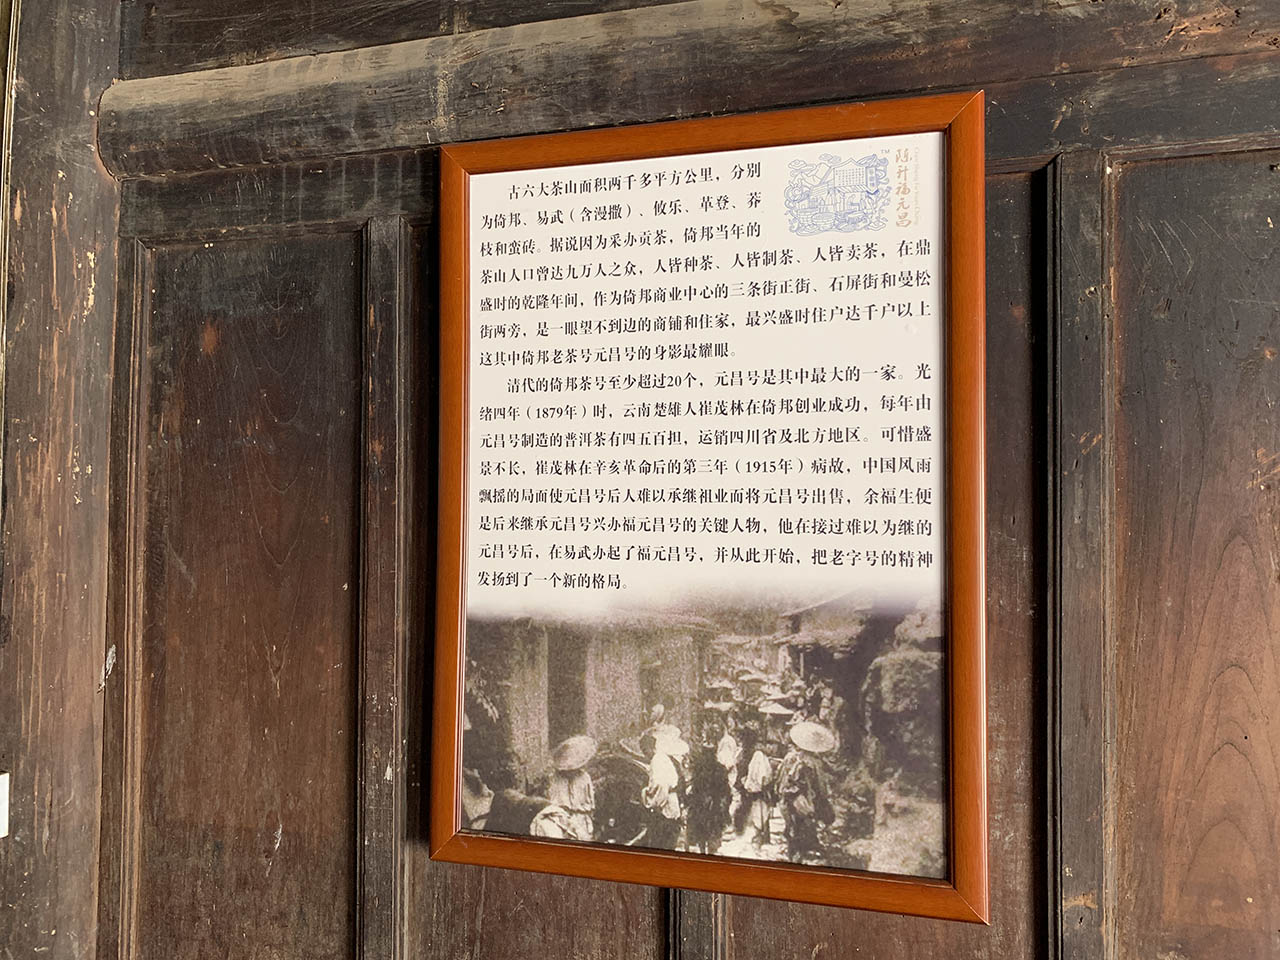 古六大茶山面积两千多平方公里，分别
为倚邦、易武（含漫撒）、攸乐、革登、莽
枝和蛮砖。据说因为采办贡茶，倚邦当年的
茶山人口曾达九万人之众，人皆种茶、人皆制茶、人皆卖茶，在鼎
盛时的乾隆年间，作为倚邦商业中心的三条街正街、石屏街和曼松
街两旁，是一眼望不到边的商铺和住家，最兴盛时住户达千户以上
这其中倚邦老茶号元昌号的身影最耀眼。
清代的倚邦茶号至少超过20个，元昌号是其中最大的一家。光
绪四年（1879年）时，云南楚雄人崔茂林在倚邦创业成功，每年由
元昌号制造的普洱茶有四五百担，运销四川省及北方地区。可惜盛
景不长，崔茂林在辛亥革命后的第三年（1915年）病故，中国风雨
飘摇的局面使元昌号后人难以承继祖业而将元昌号出售，余福生便
是后来继承元昌号兴办福元昌号的关键人物，他在接过难以为继的
元昌号后，在易武办起了福元昌号，并从此开始，把老字号的精神
发扬到了一个新的格局。
TM
陈升福元昌